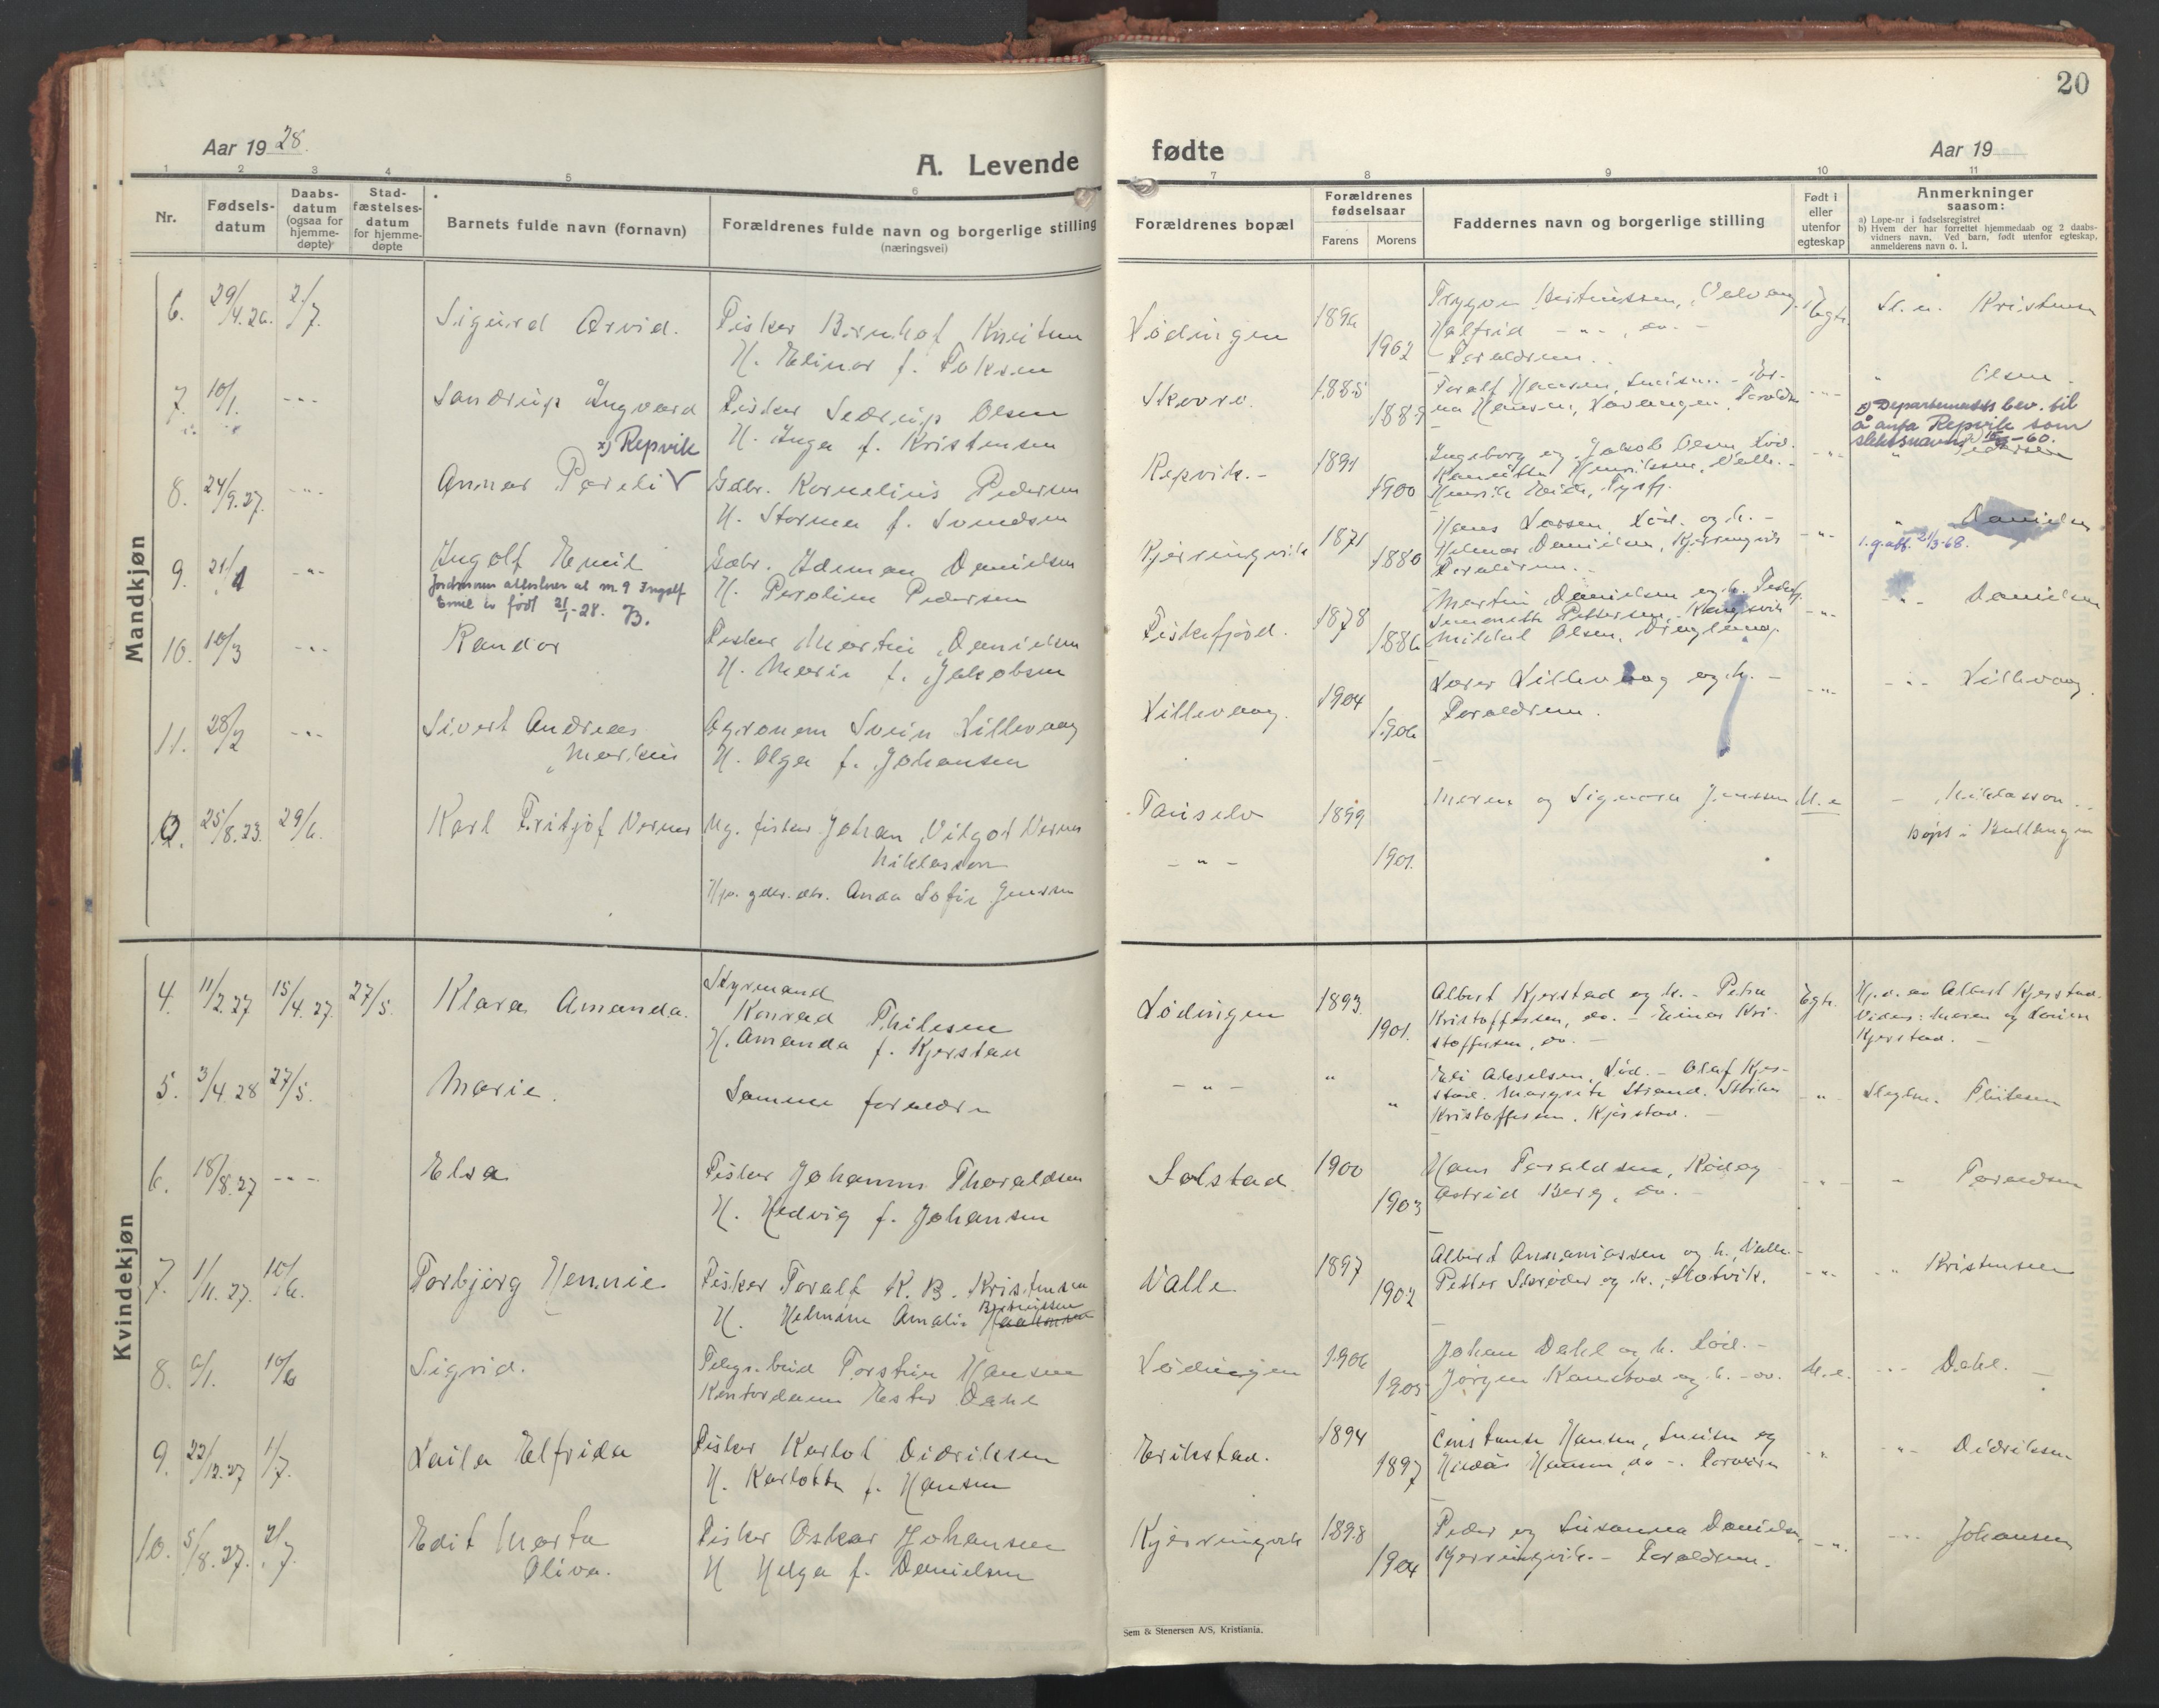 20
Aar 1928.
A. Levende
fødte
Aar 19
1 2 3 4 5 6 7 8 9 10 11
Nr.
Fødsels-
datum
Daabs-
datum
(ogsaa for
hjemme-
døpte)
Stad-
fæstelses-
datum
for hjemme-
døpte
Barnets fulde navn (fornavn)
Forældrenes fulde navn og borgerlige stilling
(næringsvei)
Forældrenes bopæl
Forældrenes
fødselsaar
Farens Morens
Faddernes navn og borgerlige stilling
Født i
eller
utenfor
egteskap
Anmerkninger
saasom:
a) Løpe-nr i fødselsregistret
b) Hvem der har forrettet hjemmedaab og 2 daabs-
vidners navn. Ved barn, født utenfor egteskap,
anmelderens navn o. l.
Mandkjøn
6. 29/4.26. 2/7. Sigurd Arvid. Fisker Knutsen
H. Elinor f.
Lødingen 1896 1902
Halfrid - " -, do. -
Forældrene.
Egte. Kristensen
7. 10/1. - " - Sandrup Ingvard Fisker Olsen
x) Repvik H. Inga f. Kristensen
1885 1889
Toralf Hansen,
Hansen,
- " - " Olsen
x) Departementets bev. til
å anta Repvik som
slektsnavn -60.
8. 24/9.27. - " - Annar Pareli Gdbr. Kornelius Pedersen
H. f. Svendsen
Repvik. - 1891 1900
Ingeborg og Jakob Olsen Lød.
Henriksen, Valle. -
Henrik
- " - " Pedersen
9. 21/1 - " - Ingolf Emil Gdbr. Danielsen
Jordmoren attesterer at nr. 9 Ingolf
Emil er født 21/1-28. B.
H. Peroline Pedersen
Kjerringvik 1871 1880
Hans Larsen, Lød. og h. -
Helmar Danielsen, Kjerringvik
Forældrene. -
- " - " Danielsen
1. g. att. 2/3-68.
10. 10/3 - " - Randor Fisker Martin Danielsen
H. Marie f. Jakobsen
Fiskefjord. 1878 1886
Martin Danielsen og h. Fiskefj.
Pettersen,
Mikkel Olsen,
- " - - " - Danielsen
11. 28/2 - " - Sivert Andreas
Markus
Agronom Svein Lillevaag
H. Olga f. Johansen
Lillevaag. 1904 1906
Lars Lillevaag og h. -
Forældrene.
- " - - " - Lillevaag.
12. 25/8.23. 29/6. Karl Fritjof Verner Ug. fisker Johan Vilgot Verner
Niklasson
gdbr. dtr. Anda Sofie Jenssen
Tauselv 1899
- " - 1901.
Maren og Signora Jenssen U.e. - Niklasson. -
Døpt i Ballangen
Kvindekjøn
4. 11/2.27 15/4.27. 27/5. Klara Amanda. Styrmand
Konrad Thilesen
H. Amanda f. Kjerstad
Lødingen 1893. 1901.
Albert Kjerstad og h. - Petra
Kristoffersen, do. - Einar Kri-
stoffersen, do. -
Egte. Hj.d. av Albert Kjerstad.
Vidner: Maren og
Kjerstad. -
5. 3/4.28 27/5. Marie. Samme forældre
- " - " "
Eli Akselsen, Lød. - Olaf Kjer-
stad. Margrete Strand.
Kristoffersen, Kjerstad. -
- " - Thilesen
6. 18/8.27 - " - Elsa Fisker Johannes Thoraldsen
H. Hedvig f. Johansen
Solstad. 1900 1903
Hans Toraldsen, Lød og
Astrid Berg, do. -
- " - " Toraldsen
7. 1/11.27. 10/6. Torbjørg Hennie Fisker Toralf K. B. Kristensen
H. Helmine Amalie Bertnissen
Valle 1897 1902
Albert Annaniassen og h., Valle. -
Petter Skrøder og h., Slotvik.
- " - - " Kristensen
8. 6/1. 10/6 Sigrid. Telegr. Torstein Hansen
Kontordame Ester Dahl
Lødingen 1906 1905
Johan Dahl og h. Lød. -
Jørgen Kanstad og h. - do.
U.e. - " - Dahl. -
9. 22/12.27 1/7. Laila Elfrida Fisker Karlot Didriksen
H. Karlotte f. Hansen
Erikstad. 1894 1897
Hansen, og
Hansen, do -.
- " - " - Didriksen
10. 5/8.27. 2/7. Edit Marta
Oliva.
Fisker Oskar Johansen
H Helga f. Danielsen
Kjerringvik 1898 1904
Peder og Susanna Danielsen,
Kjerringvik. - Forældrene.
- " - - " - Johansen
Sem & Stenersen A/S, Kristiania.